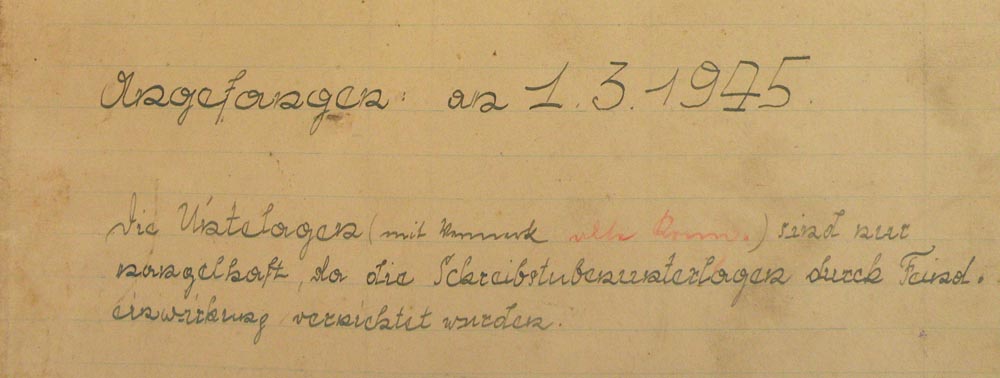 Angefangen: am 1.3.1945.
Die Unterlagen (mit Vermerk alte Komm.) sind nur
mangelhaft, da die Schreibstubenunterlagen durch Feind-
einwirkung vernichtet wurden.